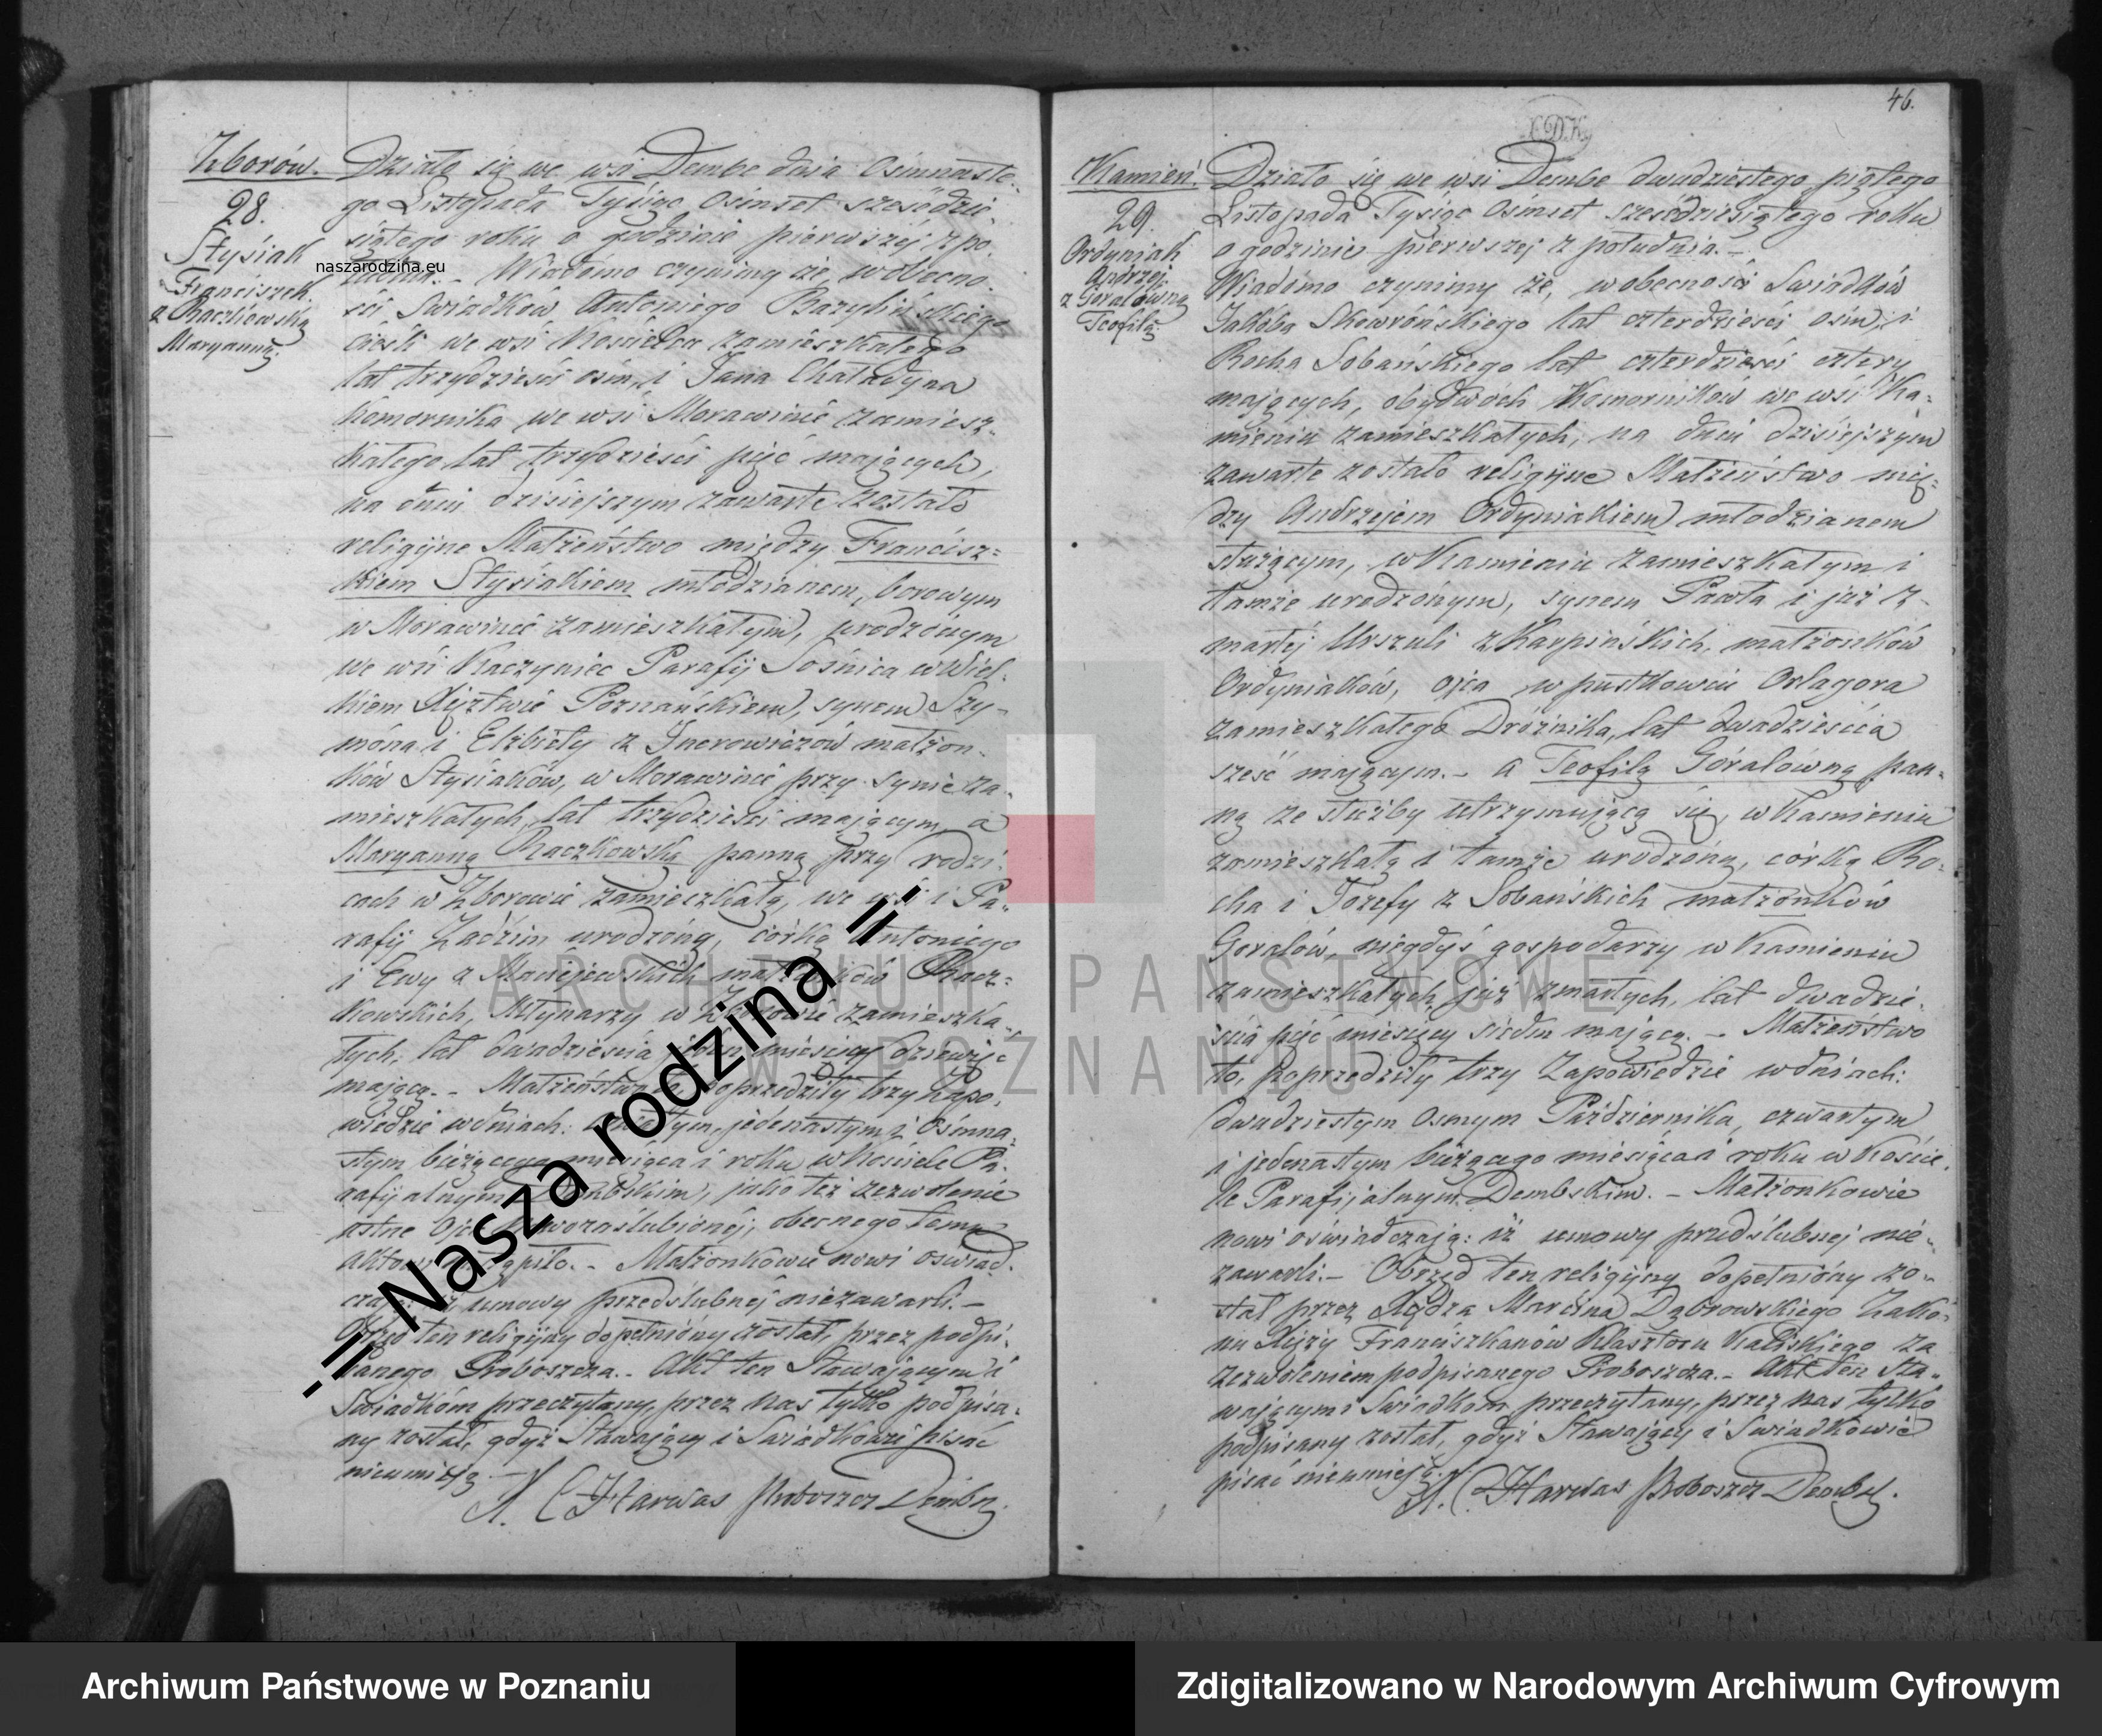 46.
X.D.K.
Zborów.
28.
Stysiak
Franciszek
z Raczkowską
Maryanną.
Działo się we wsi Dembe dnia Osimnaste-
go Listopada Tysiąc Ośmset sześćdzie-
siątego roku o godzinie pierwszej z po-
łudnia. - Wiadomo czynimy że, w obecno-
ści Świadków Antoniego Bazylińskiego
cieśli we wsi Kościelca zamieszkałego
lat trzydzieści ośm, i Jana Chaładyna
Komornika we wsi Morawinie zamiesz-
kałego lat trzydzieści pięć mających,
na dniu dzisiejszym zawarte zostało
religijne Małżeństwo między Francisz-
kiem Stysiakiem młodzianem, borowym
w Morawinie zamieszkałym, urodzonym
we wsi Kaczyniec Parafij Sośnica w Wiel-
kiem Xięztwie Poznańskiem, synem Szy-
mona i Elżbiety z małżon-
ków Stysiaków, w Morawinie przy synie za-
mieszkałych, lat trzydzieści mającym, a
Maryanną Raczkowską panną przy rodzi-
cach w Zborowie zamieszkałą, we wsi i Pa-
rafij Zadzim urodzoną, córką Antoniego
i Ewy z Maciejewskich małżonków Racz-
kowskich, Młynarzy w Zborowie zamieszka-
łych, lat dwadzieścia jeden miesięcy dziewięć
mającą. - Małżeństwo to poprzedziły trzy Zapo-
wiedzie w dniach: czwartym, jedenastym i Osimna-
stym bieżącego miesiąca i roku w Kościele Pa-
rafijalnym Dembskim, jako też zezwolenie
ustne Ojca nowozaślubionej, obecnego temu
Aktowi nastąpiło. - Małżonkowie nowi oświad-
czają: iż umowy przedślubnej niezawarli. -
Obrzęd ten religijny dopełniony został, przez podpi-
sanego Proboszcza. - Akt ten Stawającym i
Świadkom przeczytany, przez nas tylko podpisa-
ny został, gdyż Stawający i Świadkowie pisać
nieumieją. -
X. Harwas Proboszcz Dembs.
Kamień.
29.
Ordyniak
Andrzej
z Góralówną
Teofilą
Działo się we wsi Dembe dwudziestego piątego
Listopada Tysiąc Ośmset sześćdziesiątego roku
o godzinie pierwszej z południa. -
Wiadomo czynimy że, w obecności Świadków
Jakóba Skowrońskiego lat czterdzieści ośm, i
Rocha Sobańskiego lat czterdzieści cztery
mających, obydwóch Komorników we wsi Ka-
mieniu zamieszkałych, na dniu dzisiejszym
zawarte zostało religijne Małżeństwo mię-
dzy Andrzejem Ordyniakiem młodzianem
służącym, w Kamieniu zamieszkałym i
tamże urodzonym, synem Pawła i już z-
marłej Urszuli z Karpińskich, małżonków
Ordyniaków, ojca w pustkowiu Orlagora
zamieszkałego Dróżnika, lat dwadzieścia
sześć mającym. - a Teofilą Góralówną pan-
ną ze służby utrzymującą się, w Kamieniu
zamieszkałą i tamże urodzoną, córką Ro-
cha i Józefy z Sobańskich małżonków
Goralów, niegdyś gospodarzy w Kamieniu
zamieszkałych już zmarłych, lat dwadzie-
ścia pięć miesięcy siedm mającą. - Małżeństwo
to, poprzedziły trzy Zapowiedzie w dniach:
dwudziestym ósmym Października, czwartym
i jedenastym bieżącego miesiąca i roku w Koście-
le Parafijalnym Dembskim. - Małżonkowie
nowi oświadczają: iż umowy przedślubnej nie-
zawarli. - Obrzęd ten religijny dopełniony zo-
stał przez Xiędza Marcina Dąbrowskiego Zako-
nu Xięży Franciszkanów Klasztoru Kaliskiego za
zezwoleniem podpisanego Proboszcza. - Akt ten Sta-
wającym i Świadkom przeczytany, przez nas tylko
podpisany został, gdyż Stawający i Świadkowie
pisać nieumieją. -
X. Harwas Proboszcz Dembs.
naszarodzina.eu
-= Nasza rodzina =-
ARCHIWUM PAŃSTWOWE
W POZNANIU
Archiwum Państwowe w Poznaniu
Zdigitalizowano w Narodowym Archiwum Cyfrowym